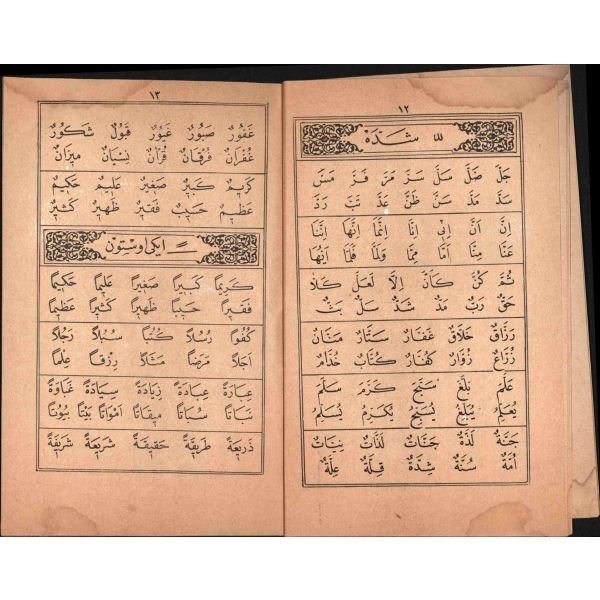 ١٢
شَدَّه
جَلَّ ضَلَّ سَلَّ سَرَّ مَرَّ فَرَّ مَسَّ
سَدَّ مَدَّ سَنَّ ظَنَّ عَدَّ تَبَّ رَدَّ
اِنَّ اَنَّ اِنّٖى اِنَّا اِنَّمَا اِنَّهَا اِنَّنَا
عَنَّا مِنَّا اَمَّا مِمَّا وَلَمَّا فَلَمَّا اِنَّهَا
ثُمَّ كُنَّ كَاَنَّ اِلَّا لَعَلَّ كَلَّا
حَقٌّ رَبٌّ مَدٌّ شَدٌّ سَلٌّ بَثٌّ
رَزَّاقٌ خَلَّاقٌ غَفَّارٌ سَتَّارٌ مَنَّانٌ
زُرَّاعٌ زُوَّارٌ كُفَّارٌ كُتَّابٌ خُدَّامٌ
عَلَّمَ بَلَّغَ سَبَّحَ كَرَّمَ سَلَّمَ
يُعَلِّمُ يُبَلِّغُ يُسَبِّحُ يُكَرِّمُ يُسَلِّمُ
جَنَّةٌ لَذَّةٌ جَنَّاتٌ لَذَّاتٌ نِيَّاتٌ
اُمَّةٌ سُنَّةٌ شِدَّةٌ قِلَّةٌ عِلَّةٌ
١٣
غَفُورٌ صَبُورٌ غَيُورٌ قَبُولٌ شَكُورٌ
غُفْرَانٌ فُرْقَانٌ قُرْاٰنٌ نِسْيَانٌ مٖيزَانٌ
كَرٖيمٌ كَبٖيرٌ صَغٖيرٌ عَلٖيمٌ حَكٖيمٌ
عَظٖيمٌ حَسٖيبٌ فَقٖيرٌ ظَهٖيرٌ كَثٖيرٌ
ً ايكى اوستون
كَرٖيمًا كَبٖيرًا صَغٖيرًا عَلٖيمًا حَكٖيمًا
فَقٖيرًا حَسٖيبًا ظَهٖيرًا كَثٖيرًا عَظٖيمًا
كُفُوًا رُسُلًا كُتُبًا سُبُلًا رَجُلًا
اَجَلًا مَرَضًا مَثَلًا رِزْقًا عِلْمًا
عِبَارَةً عِبَادَةً زِيَادَةً سِيَادَةً غَبَاوَةً
نَبَاتًا سُبَاتًا مٖيقَاتًا اَمْوَاتًا بَيْتًا بُيُوتًا
ذَرٖيعَةً طَرٖيقَةً حَقٖيقَةً شَرٖيعَةً شَرٖيفَةً